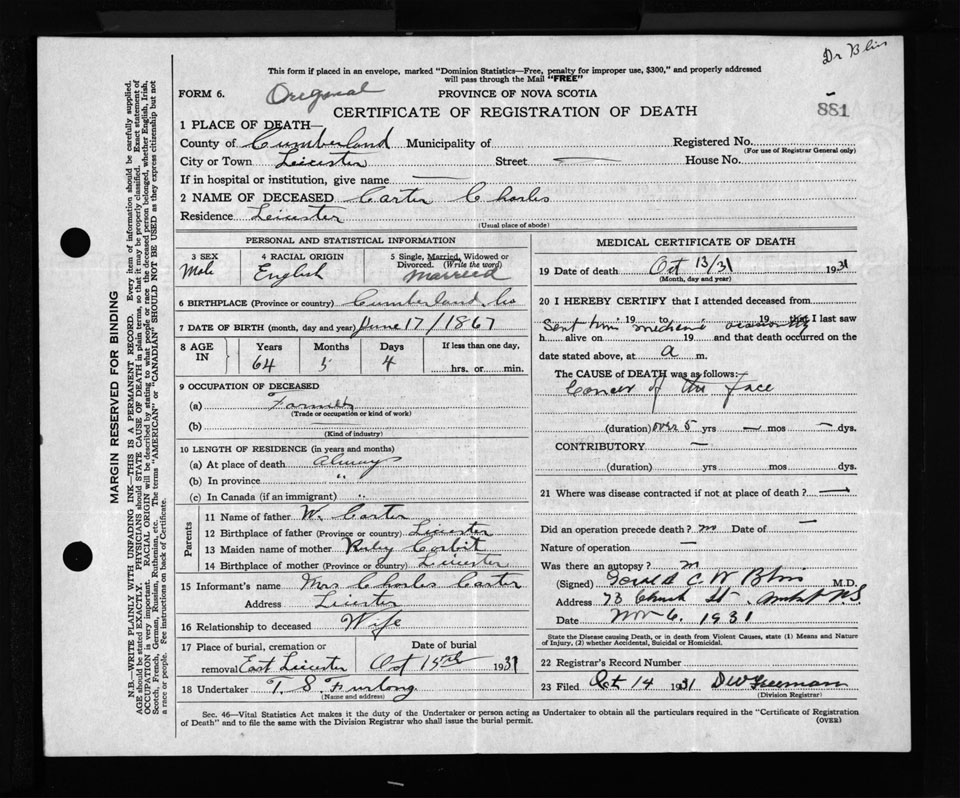 Dr Blis
This form if placed in an envelope, marked "Dominion Statistics—Free, penalty for improper use, $300," and properly addressed
will pass through the Mail "FREE"
FORM 6. Original PROVINCE OF NOVA SCOTIA
CERTIFICATE OF REGISTRATION OF DEATH 881
1 PLACE OF DEATH—
County of Cumberland Municipality of Registered No.
(For use of Registrar General only)
City or Town Leicester Street — House No.
If in hospital or institution, give name —
2 NAME OF DECEASED Carter Charles
Residence Leicester
(Usual place of abode)
PERSONAL AND STATISTICAL INFORMATION
3 SEX 4 RACIAL ORIGIN 5 Single, Married, Widowed or
Divorced. (Write the word)
Male English Married
6 BIRTHPLACE (Province or country) Cumberland Co
7 DATE OF BIRTH (month, day and year) June 17/1867
8 AGE IN Years Months Days If less than one day,
64 5 4 hrs. or min.
9 OCCUPATION OF DECEASED
(a) Farmer
(Trade or occupation or kind of work)
(b) —
(Kind of industry)
10 LENGTH OF RESIDENCE (in years and months)
(a) At place of death always
(b) In province "
(c) In Canada (if an immigrant) "
Parents
11 Name of father W. Carter
12 Birthplace of father (Province or country) Leicester
13 Maiden name of mother Ruby Corbit
14 Birthplace of mother (Province or country) Leicester
15 Informant's name Mrs Charles Carter
Address Leicester
16 Relationship to deceased Wife
17 Place of burial, cremation or Date of burial
removal East Leicester Oct 15th 1931
18 Undertaker T. S. Furlong
(Name and address)
MEDICAL CERTIFICATE OF DEATH
19 Date of death Oct 13/31 1931
(Month, day and year)
20 I HEREBY CERTIFY that I attended deceased from
Sent him 19 to medicine 19 that I last saw
h alive on 19 and that death occurred on the
date stated above, at a m.
The CAUSE of DEATH was as follows:
Cancer of the face
(duration) over 5 yrs — mos — dys.
CONTRIBUTORY —
(duration) yrs mos dys.
21 Where was disease contracted if not at place of death? —
Did an operation precede death? no Date of —
Nature of operation —
Was there an autopsy? no
(Signed) C W Blis M.D.
Address 73 Church St. Amherst N.S
Date Nov 6. 1931
State the Disease causing Death, or in death from Violent Causes, state (1) Means and Nature
of Injury, (2) whether Accidental, Suicidal or Homicidal.
22 Registrar's Record Number
23 Filed Oct 14 1931 D W Freeman
(Division Registrar)
Sec. 46—Vital Statistics Act makes it the duty of the Undertaker or person acting as Undertaker to obtain all the particulars required in the "Certificate of Registration
of Death" and to file the same with the Division Registrar who shall issue the burial permit. (OVER)
MARGIN RESERVED FOR BINDING
N.B.—WRITE PLAINLY WITH UNFADING INK—THIS IS A PERMANENT RECORD. Every item of information should be carefully supplied.
AGE should be stated EXACTLY. PHYSICIANS should STATE CAUSE OF DEATH in plain terms, so that it may be properly classified. Exact statement of
OCCUPATION is very important. RACIAL ORIGIN will be described by stating to what people or race the deceased person belonged, whether English, Irish,
Scotch, French, German, Russian, Ruthenian, etc. The terms "AMERICAN" or "CANADIAN" SHOULD NOT BE USED as they express citizenship but not
a race or people. See instructions on back of Certificate.